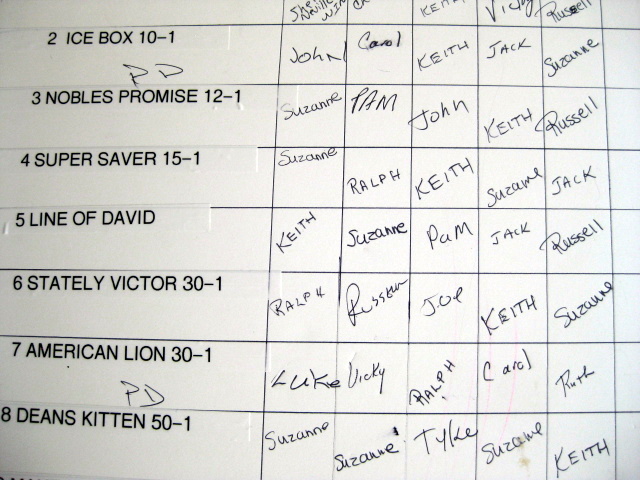 KEITH Vicky Russell
2 ICE BOX 10-1 JOHN Carol KEITH JACK Suzanne
PD
3 NOBLES PROMISE 12-1 Suzanne PAM John KEITH Russell
4 SUPER SAVER 15-1 Suzanne RALPH KEITH Suzanne JACK
5 LINE OF DAVID KEITH Suzanne PAM JACK Russell
6 STATELY VICTOR 30-1 RALPH Russell JOE KEITH Suzanne
7 AMERICAN LION 30-1 Luke Vicky RALPH Carol Ruth
PD
8 DEANS KITTEN 50-1 Suzanne Suzanne TYLER Suzanne KEITH